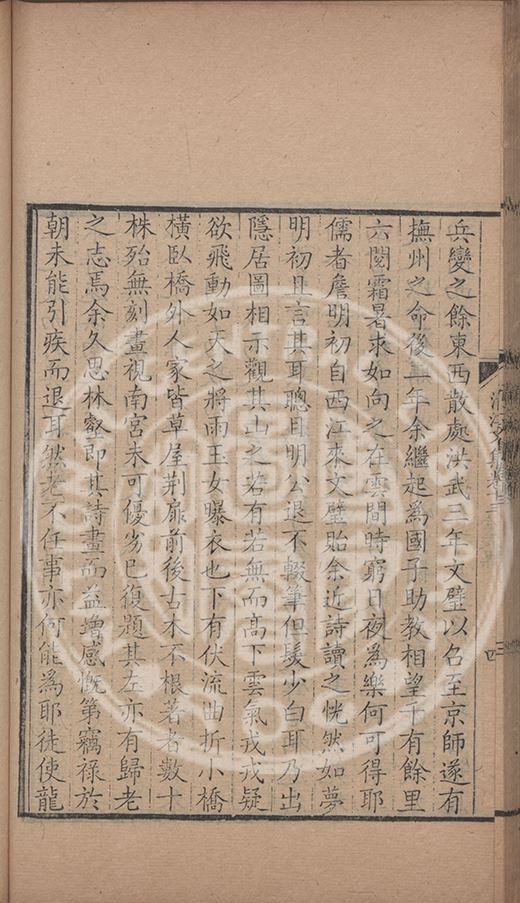 兵變之餘東西散處洪武三年文璧以召至京師遂有
撫州之命後二年余繼起為國子助教相望千有餘里
六閱霜暑求如向之在雲間時窮日夜為樂何可得耶
儒者詹明初自西江來文璧貽余近詩讀之恍然如夢
明初且言其耳聰目明公退不輟筆但髮少白耳乃出
隱居圖相示觀其山之若有若無而高下雲氣戎戎疑
欲飛動如天之將雨玉女曝衣也下有伏流曲折小橋
橫臥橋外人家皆草屋荊扉前後古木不根著者數十
株殆無刻畫視南宮未可優劣已復題其左亦有歸老
之志焉余久思林壑即其詩畫而益增感慨第竊祿於
朝未能引疾而退耳然老不任事亦何能為耶徒使龍
四